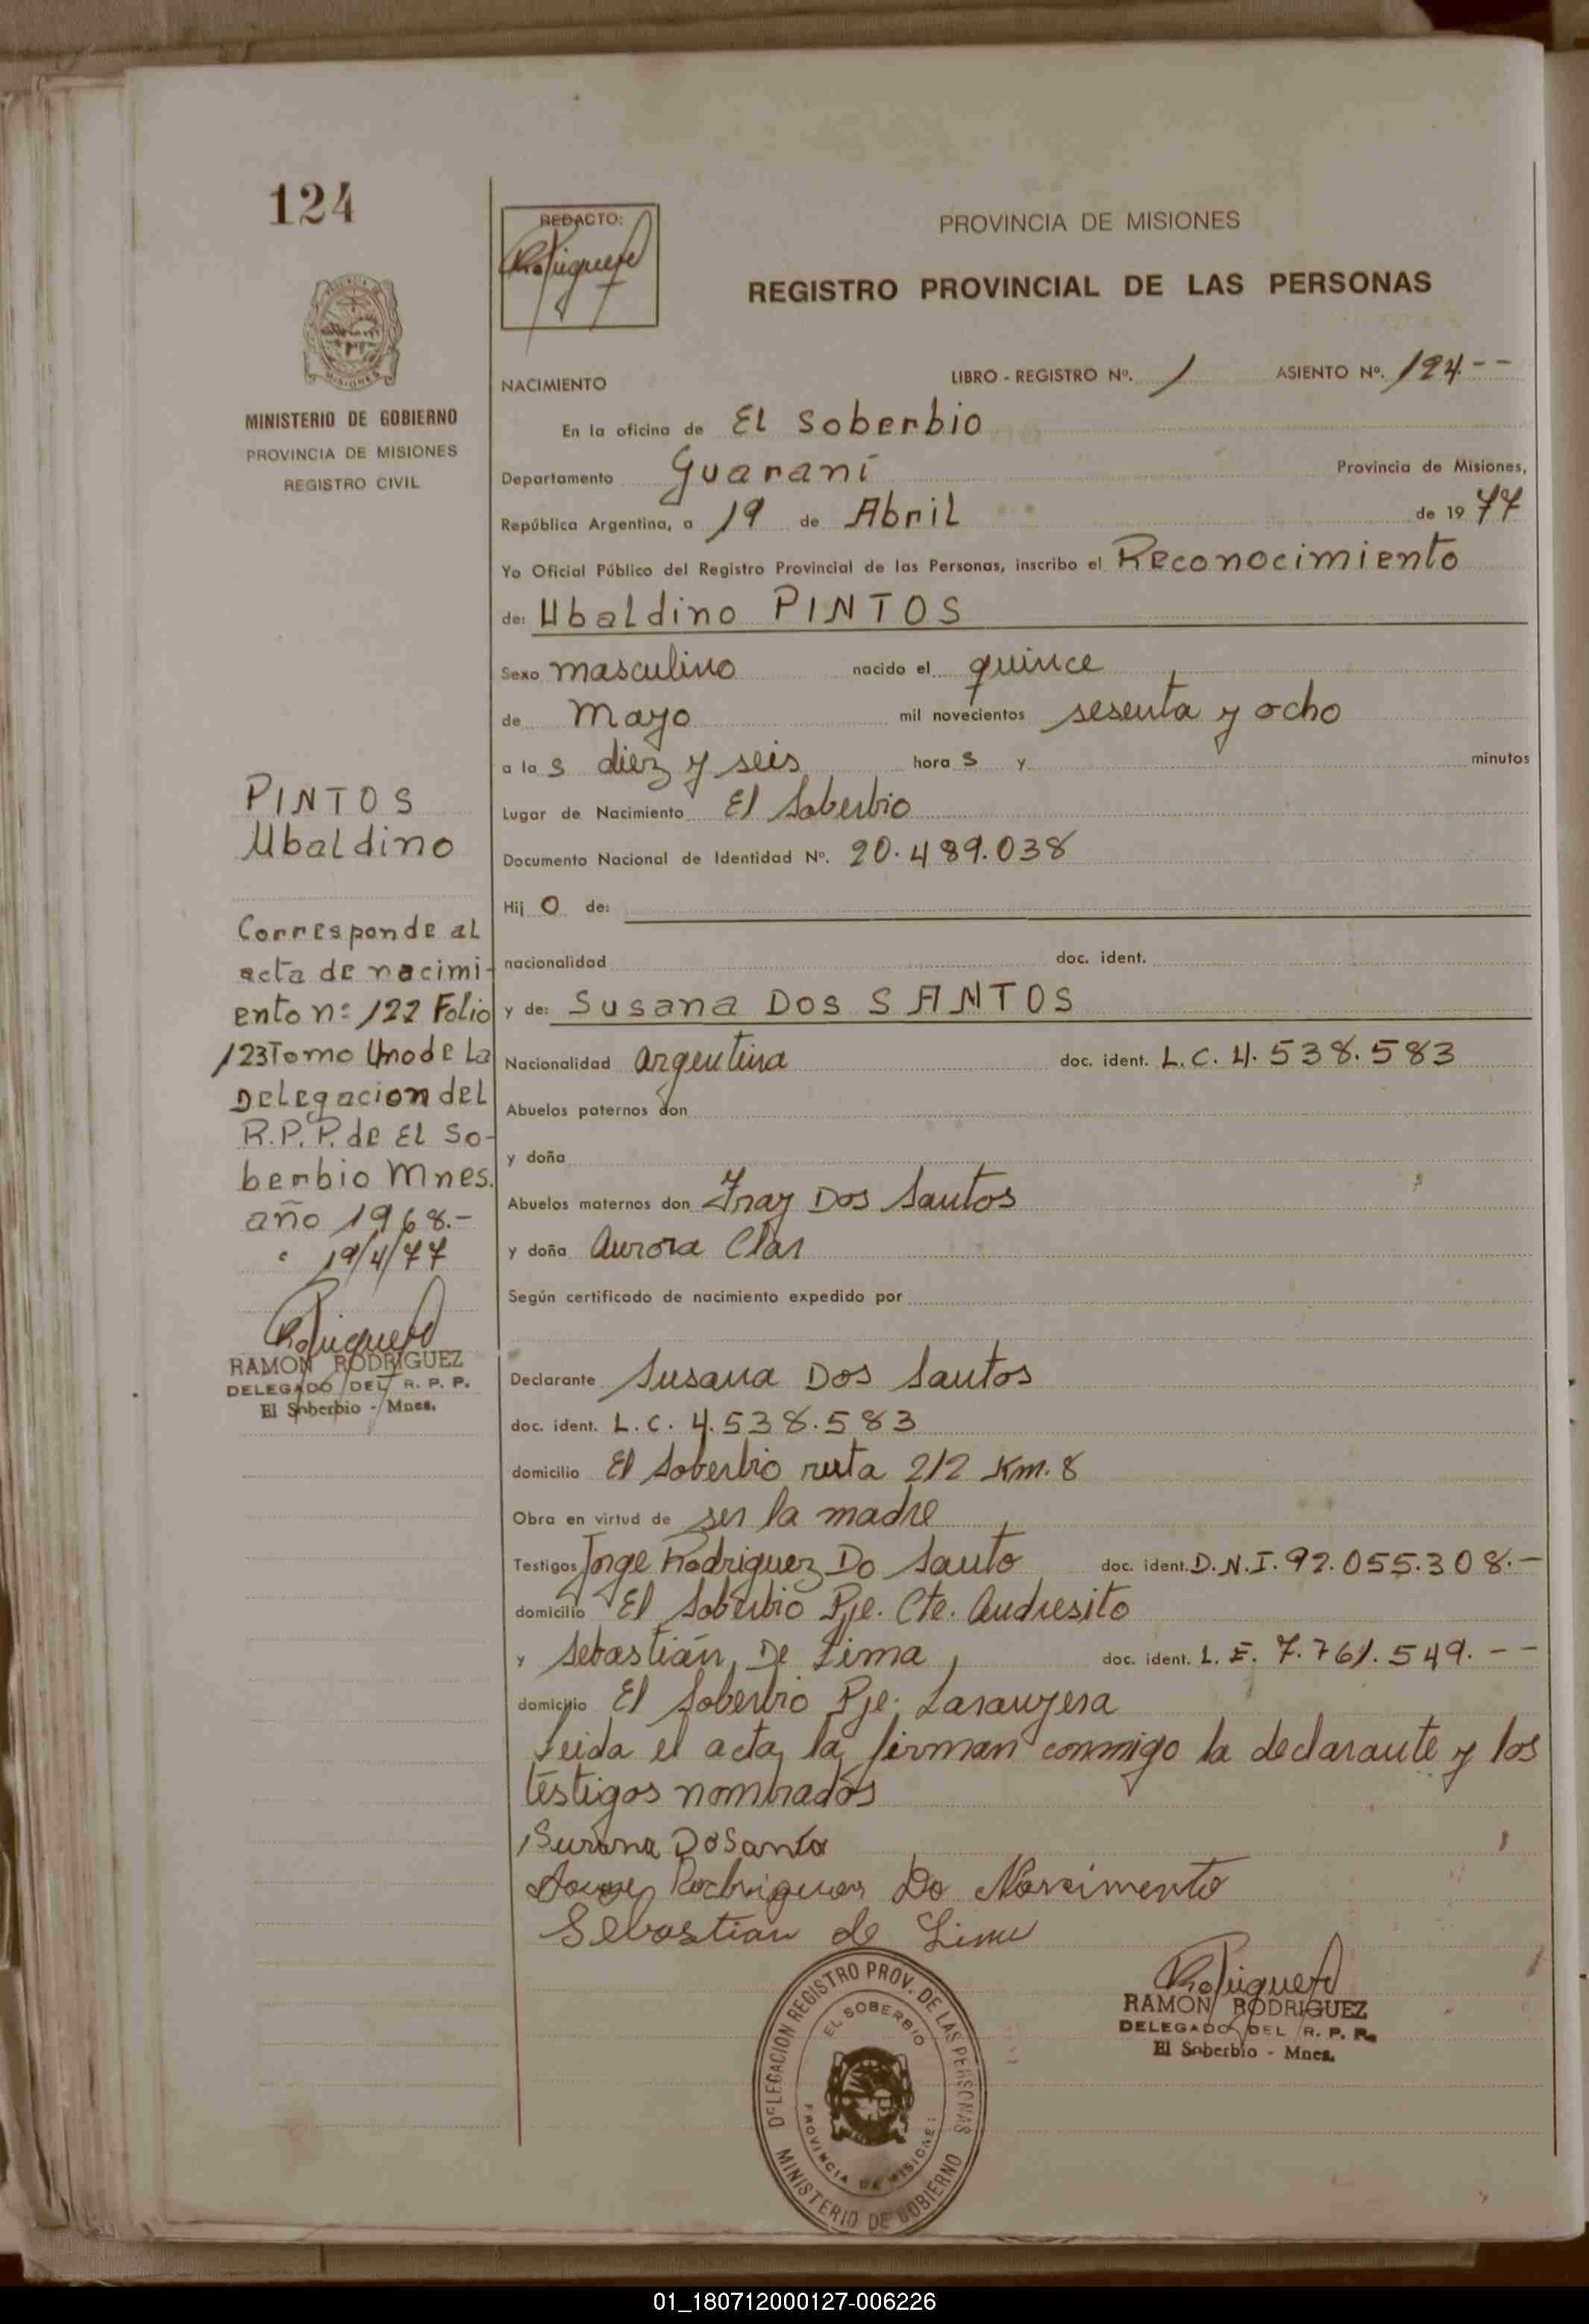 124
REDACTO:
PROVINCIA DE MISIONES
REGISTRO PROVINCIAL DE LAS PERSONAS
MINISTERIO DE GOBIERNO
PROVINCIA DE MISIONES
REGISTRO CIVIL
NACIMIENTO LIBRO - REGISTRO Nº. 1 ASIENTO Nº. 124 - -
En la oficina de El Soberbio
Departamento Guaraní Provincia de Misiones,
República Argentina, a 19 de Abril de 1977
Yo Oficial Público del Registro Provincial de las Personas, inscribo el Reconocimiento
de: Ubaldino PINTOS
Sexo masculino nacido el quince
de mayo mil novecientos sesenta y ocho
a las diez y seis horas y minutos
Lugar de Nacimiento El Soberbio
Documento Nacional de Identidad Nº. 20.489.038
Hijo de:
nacionalidad doc. ident.
y de: Susana Dos SANTOS
Nacionalidad argentina doc. ident. L.C. 4.538.583
Abuelos paternos don
y doña
Abuelos maternos don Fray Dos Santos
y doña Aurora Clar
Según certificado de nacimiento expedido por
Declarante Susana Dos Santos
doc. ident. L.C. 4.538.583
domicilio El Soberbio ruta 212 Km. 8
Obra en virtud de ser la madre
Testigos Jorge Rodriguez Do Santo doc. ident. D.N.I. 92.055.308.-
domicilio El Soberbio Pje. Cte. Andresito
y Sebastián De Lima doc. ident. L.E. 7.761.549. - -
domicilio El Soberbio Pje. Laranjera
Leida el acta, la firman conmigo la declarante y los
testigos nombrados
Susana DoSanto
Rodriguer Do Narcimento
Sebastian de Lima
PINTOS
Ubaldino
Corresponde al
acta de nacimi-
ento nº 122 Folio
123 Tomo Uno de La
Delegacion del
R.P.P. de El So-
berbio Mnes.
año 1968.-
19/4/77
RAMON RODRIGUEZ
DELEGADO DEL R. P. P.
El Soberbio - Mnes.
RAMON RODRIGUEZ
DELEGADO DEL R. P. P.
El Soberbio - Mnes.
DELEGACION REGISTRO PROV. DE LAS PERSONAS
EL SOBERBIO
PROVINCIA DE MISIONES
MINISTERIO DE GOBIERNO
01_180712000127-006226